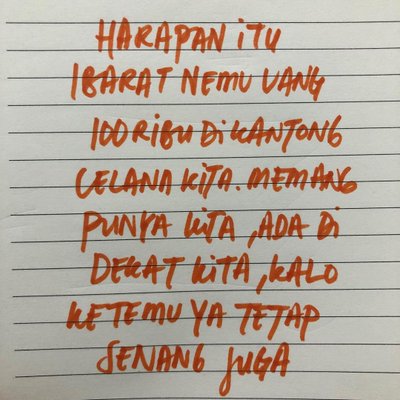 HARAPAN iTU
IBARAT NEMU UANG
100 RiBU Di KANTONG
CELANA KiTA. MEMANG
PUNYA KiTA, ADA Di
DEKAT KiTA, KALO
KETEMU YA TETAP
SENANG JUGA